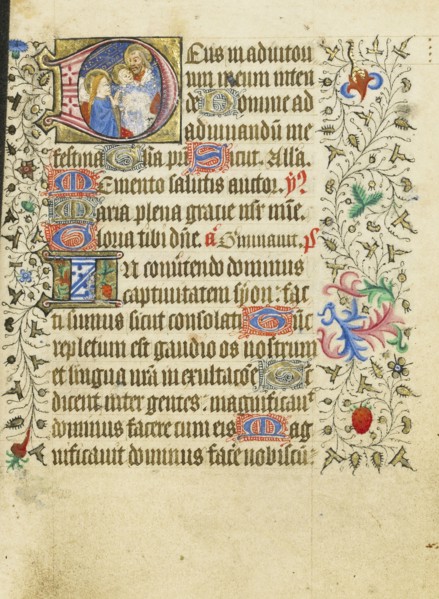 Deus in adiutori
um meum inten
de Domine ad
adiuuandū me
festina Gͥa pr̄i Sicut. Alla.
Memento salutis auctor. ÿ
Maria plena gracie m̄r mīe.
Gloria tibi dn̄e. a p̄s
In conūtendo dominus
captiuitatem syon: fac
ti sumus sicut consolati Tūc
repletum est gaudio os nostrum
et lingua nr̄a in exultacōe Tūc
dicent inter gentes: magnificauͭ
dominus facere cum eis Mag
nificauit dominus face nobiscū: